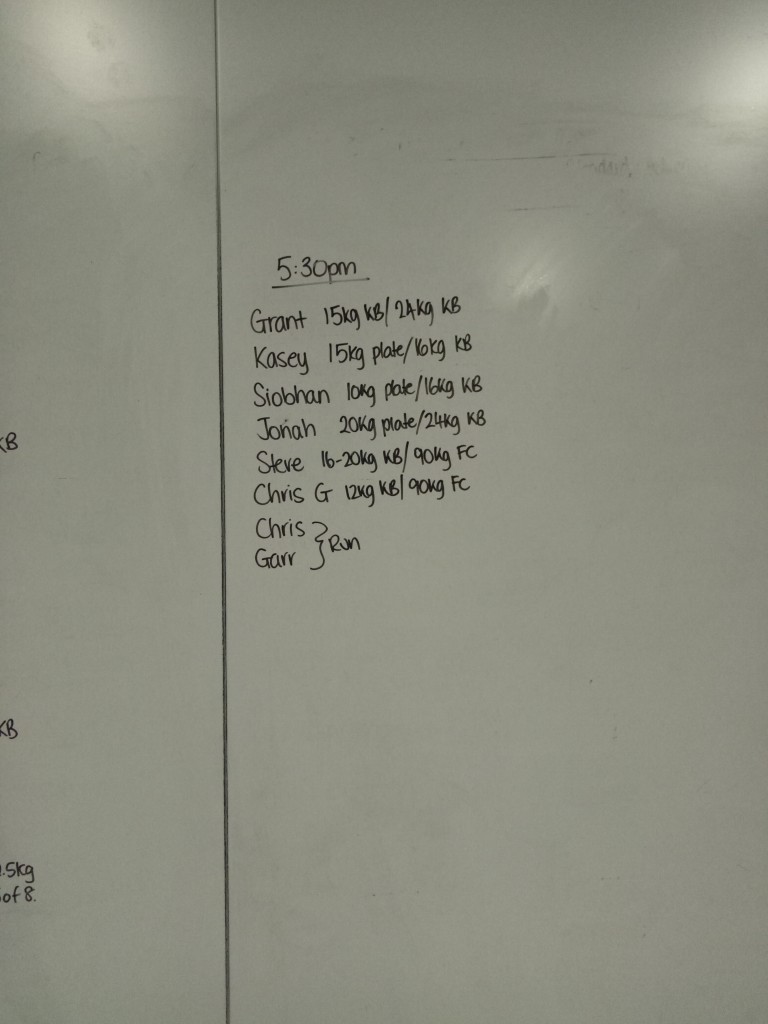 5:30pm
Grant 15kg KB/24kg KB
Kasey 15kg plate/16kg KB
Siobhan 10kg plate/16kg KB
Jonah 20kg plate/24kg KB
Steve 16-20kg KB/90kg FC
Chris G 12kg KB/90kg FC
Chris
Garr } Run
KB
KB
.5kg
of 8.